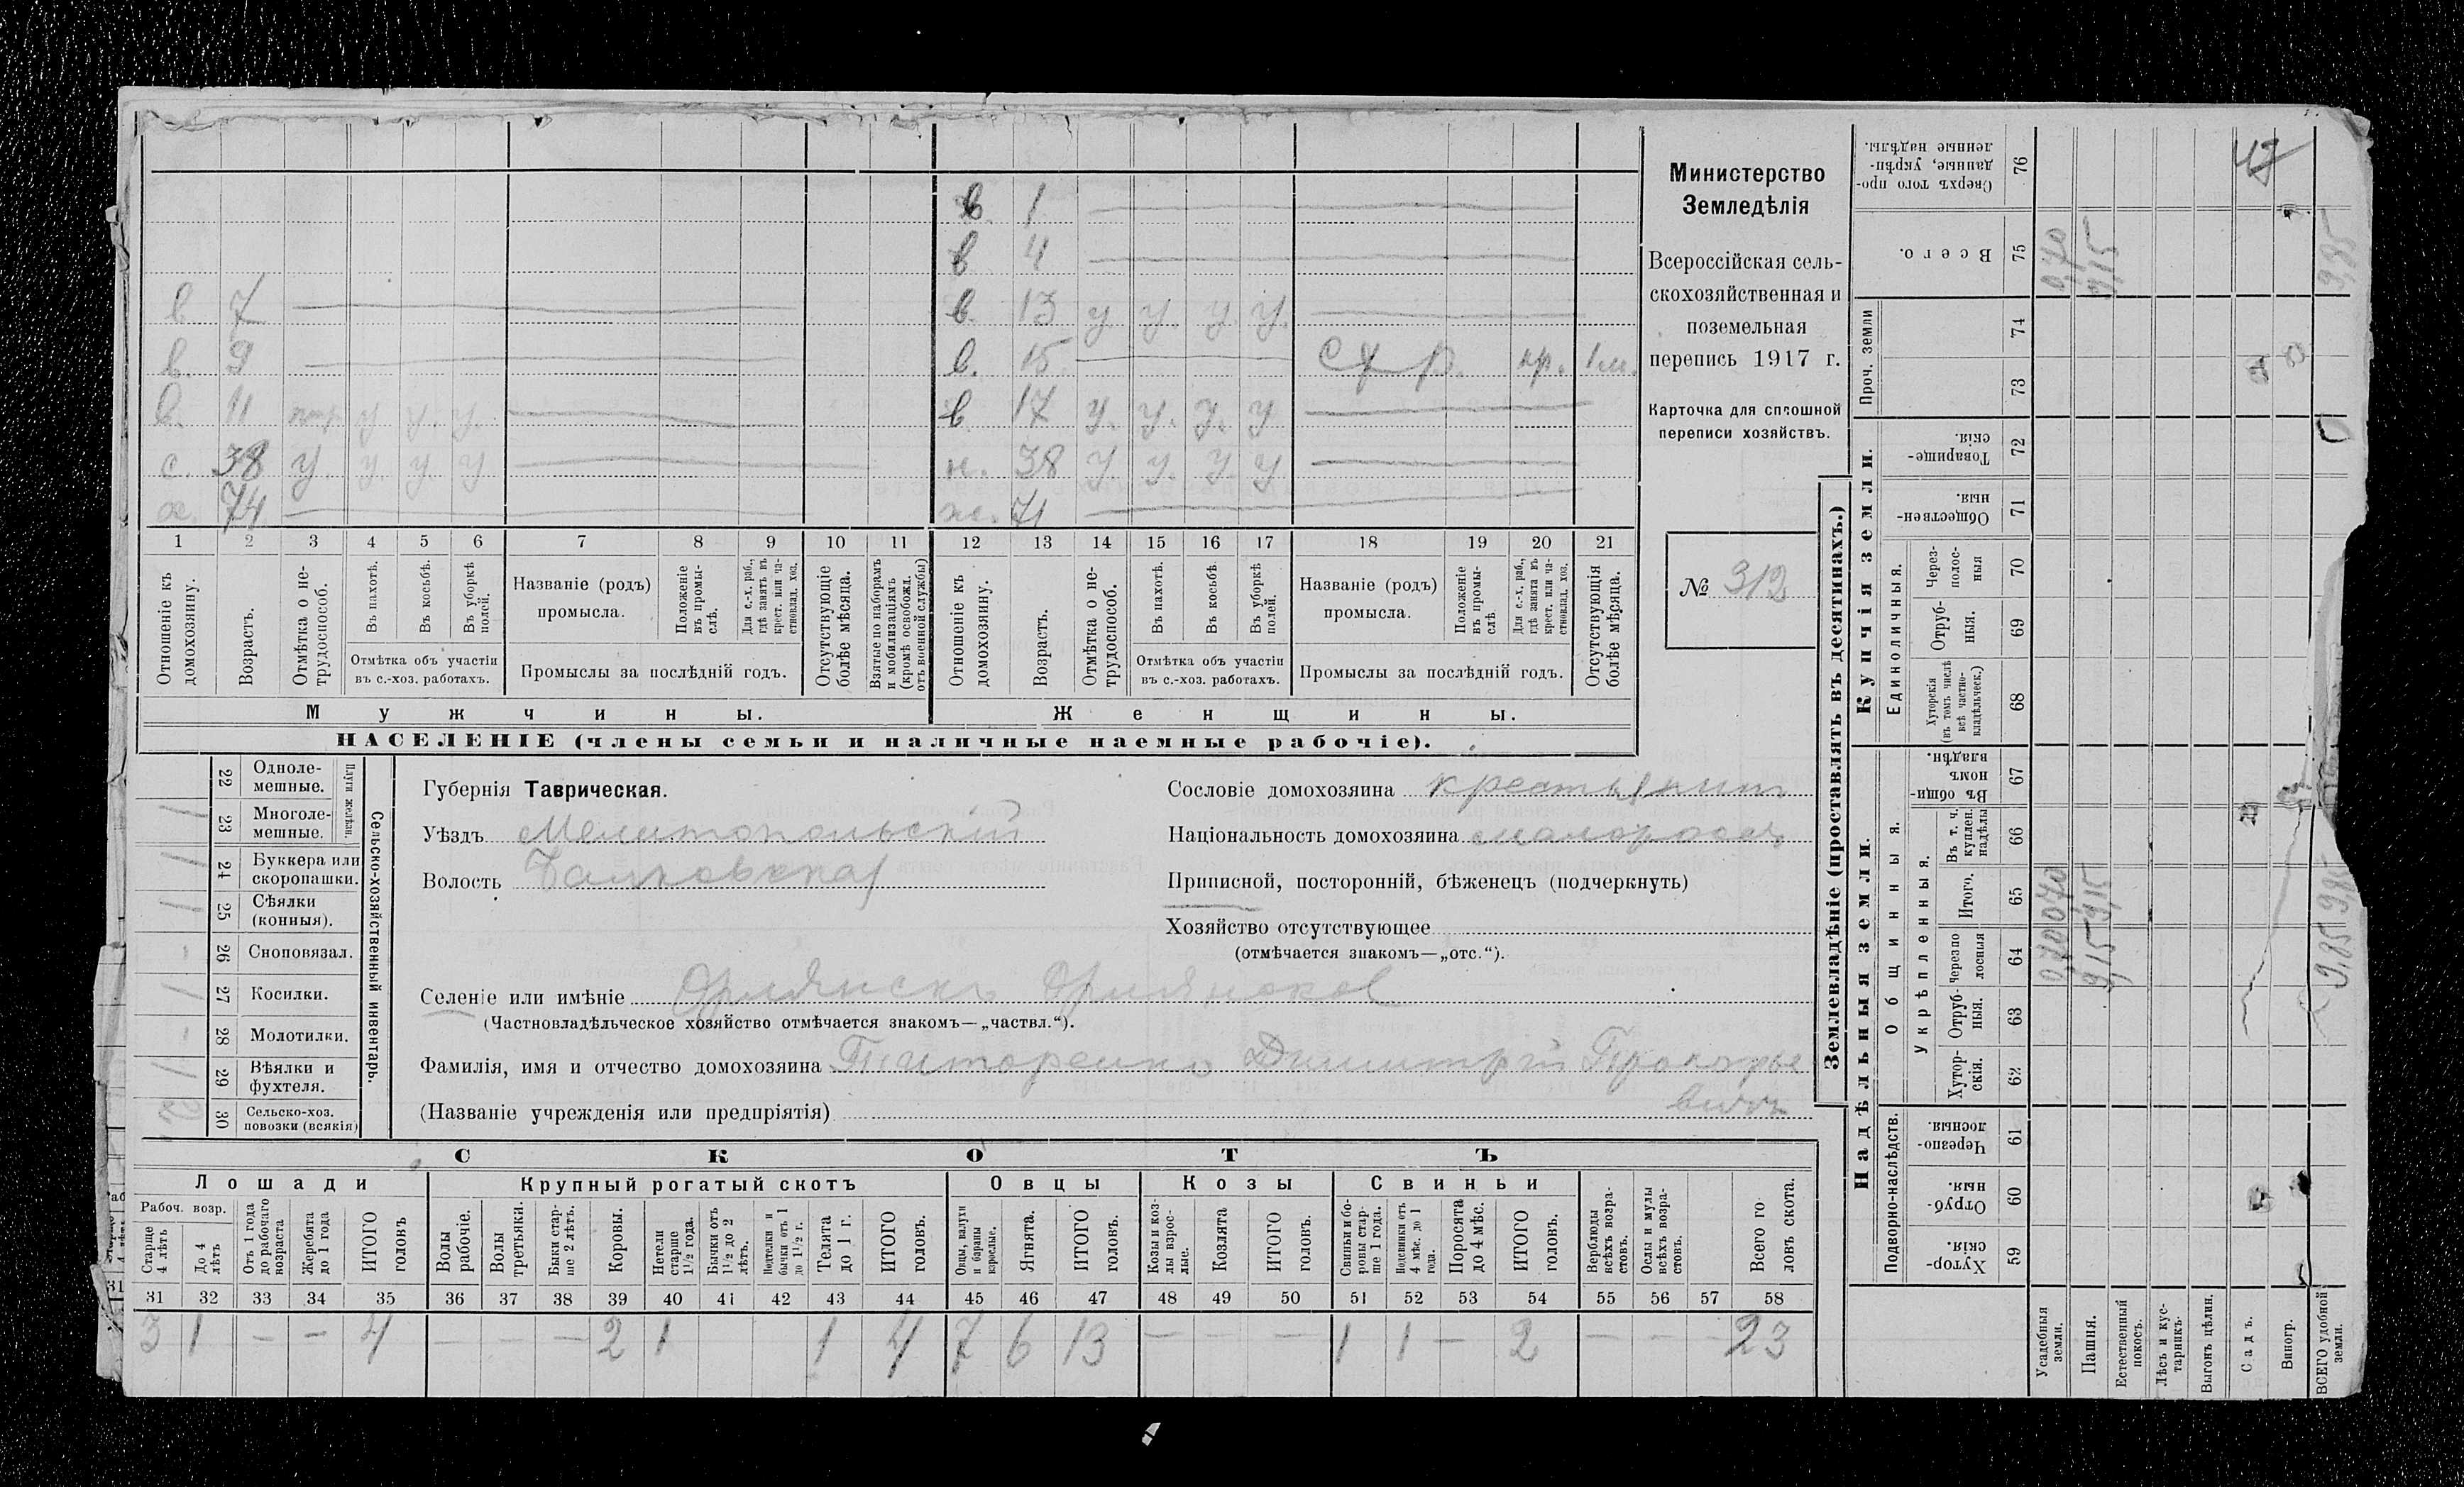 в 1
в 4
в 7 в. 13 у у. у. у.
в. 9 в. 15 С х р. кр. 1 м.
в. 11 у у. у. в 17 у. у. у. у
с. 38 у. у. у. у ж. 38 у. у. у. у
х. 74 ж. 71
1 2 3 4 5 6 7 8 9 10 11 12 13 14 15 16 17 18 19 20 21
Отношеніе къ домохозяину.
Возрастъ.
Отмѣтка о нетрудоспособ.
Въ пахотѣ.
Въ косьбѣ.
Въ уборкѣ полей.
Отмѣтка объ участіи
въ с.-хоз. работахъ.
Названіе (родъ)
промысла.
Положеніе въ промыслѣ.
Для с.-х. раб., гдѣ занятъ въ крест. или частновлад. хоз.
Промыслы за послѣдній годъ.
Отсутствующіе болѣе мѣсяца.
Взятые по наборамъ и мобилизаціямъ (кромѣ освобожд. отъ военной службы)
Отношеніе къ домохозяину.
Возрастъ.
Отмѣтка о нетрудоспособ.
Въ пахотѣ.
Въ косьбѣ.
Въ уборкѣ полей.
Отмѣтка объ участіи
въ с.-хоз. работахъ.
Названіе (родъ)
промысла.
Положеніе въ промыслѣ.
Для с.-х. раб., гдѣ занятъ въ крест. или частновлад. хоз.
Промыслы за послѣдній годъ.
Отсутствующія болѣе мѣсяца.
Мужчины.
Женщины.
НАСЕЛЕНІЕ (члены семьи и наличные наемные рабочіе).
Министерство
Земледѣлія
Всероссійская сель-
скохозяйственная и
поземельная
перепись 1917 г.
Карточка для сплошной
переписи хозяйствъ.
№ 312
22 Одноле-
мешные.
23 Многоле-
мешные.
Плуги желѣзн.
24 Буккера или
скоропашки.
25 Сѣялки
(конныя).
26 Сноповязал.
27 Косилки.
28 Молотилки.
29 Вѣялки и
фухтеля.
30 Сельско-хоз.
повозки (всякія)
Сельско-хозяйственный инвентарь.
Губернія Таврическая.
Уѣздъ Мелитопольскій
Волость
Сословіе домохозяина крестьянин
Національность домохозяина малоросс
Приписной, посторонній, бѣженецъ (подчеркнуть)
Хозяйство отсутствующее
(отмѣчается знакомъ—„отс.“).
Селеніе или имѣніе Орлянскъ
(Частновладѣльческое хозяйство отмѣчается знакомъ—„частвл.“).
Фамилія, имя и отчество домохозяина Титоренко Димитрій Прокофье
вичъ
(Названіе учрежденія или предпріятія)
СКОТЪ
Лошади
Крупный рогатый скотъ
Овцы
Козы
Свиньи
Рабоч. возр.
Старше 4 лѣтъ
До 4 лѣтъ
Отъ 1 года до рабочаго возраста
Жеребята до 1 года
ИТОГО головъ
Волы рабочіе.
Волы третьяки.
Быки старше 2 лѣтъ.
Коровы.
Нетели старше 1½ года.
Бычки отъ 1½ до 2 лѣтъ.
Подтелки и бычки отъ 1 до 1½ г.
Телята до 1 г.
ИТОГО головъ.
Овцы, валухи и бараны взрослые.
Ягнята.
ИТОГО головъ.
Козы и козлы взрослые.
Козлята
ИТОГО головъ.
Свиньи и боровы старше 1 года.
Подсвинки отъ 4 мѣс. до 1 года.
Поросята до 4 мѣс.
ИТОГО головъ.
Верблюды всѣхъ возрастовъ.
Ослы и мулы всѣхъ возрастовъ.
Всего головъ скота.
31 32 33 34 35 36 37 38 39 40 41 42 43 44 45 46 47 48 49 50 51 52 53 54 55 56 57 58
3 1 – – 4 – – – 2 1 1 4 7 6 13 – – – 1 1 – 2 – – – 23
Землевладѣніе (проставлять въ десятинахъ.)
Надѣльныя земли.
Купчія земли.
Проч. земли
Подворно-наслѣдств.
Общинныя.
Укрѣпленныя.
Единоличныя.
Хуторскія. 59
Отрубныя. 60
Черезполосныя. 61
Хуторскія. 62
Отрубныя. 63
Черезполосныя 64
Итого. 65
Въ т. ч. куплен. надѣлы 66
Въ общинномъ владѣн. 67
Хуторскія (въ томъ числѣ всѣ частновладѣльческ.) 68
Отрубныя. 69
Черезполосныя 70
Общественныя. 71
Товарищескія. 72
73
74
Всего. 75
Сверхъ того проданные, укрѣпленные надѣлы. 76
Усадебныя земли.
0,70 0,70 0,70
Пашня.
9,15 9,15 9,15
Естественный покосъ.
Лѣсъ и кустарникъ.
Выгонъ цѣлин.
Садъ.
Виногр.
ВСЕГО удобной земли.
9,85 9,85 9,85